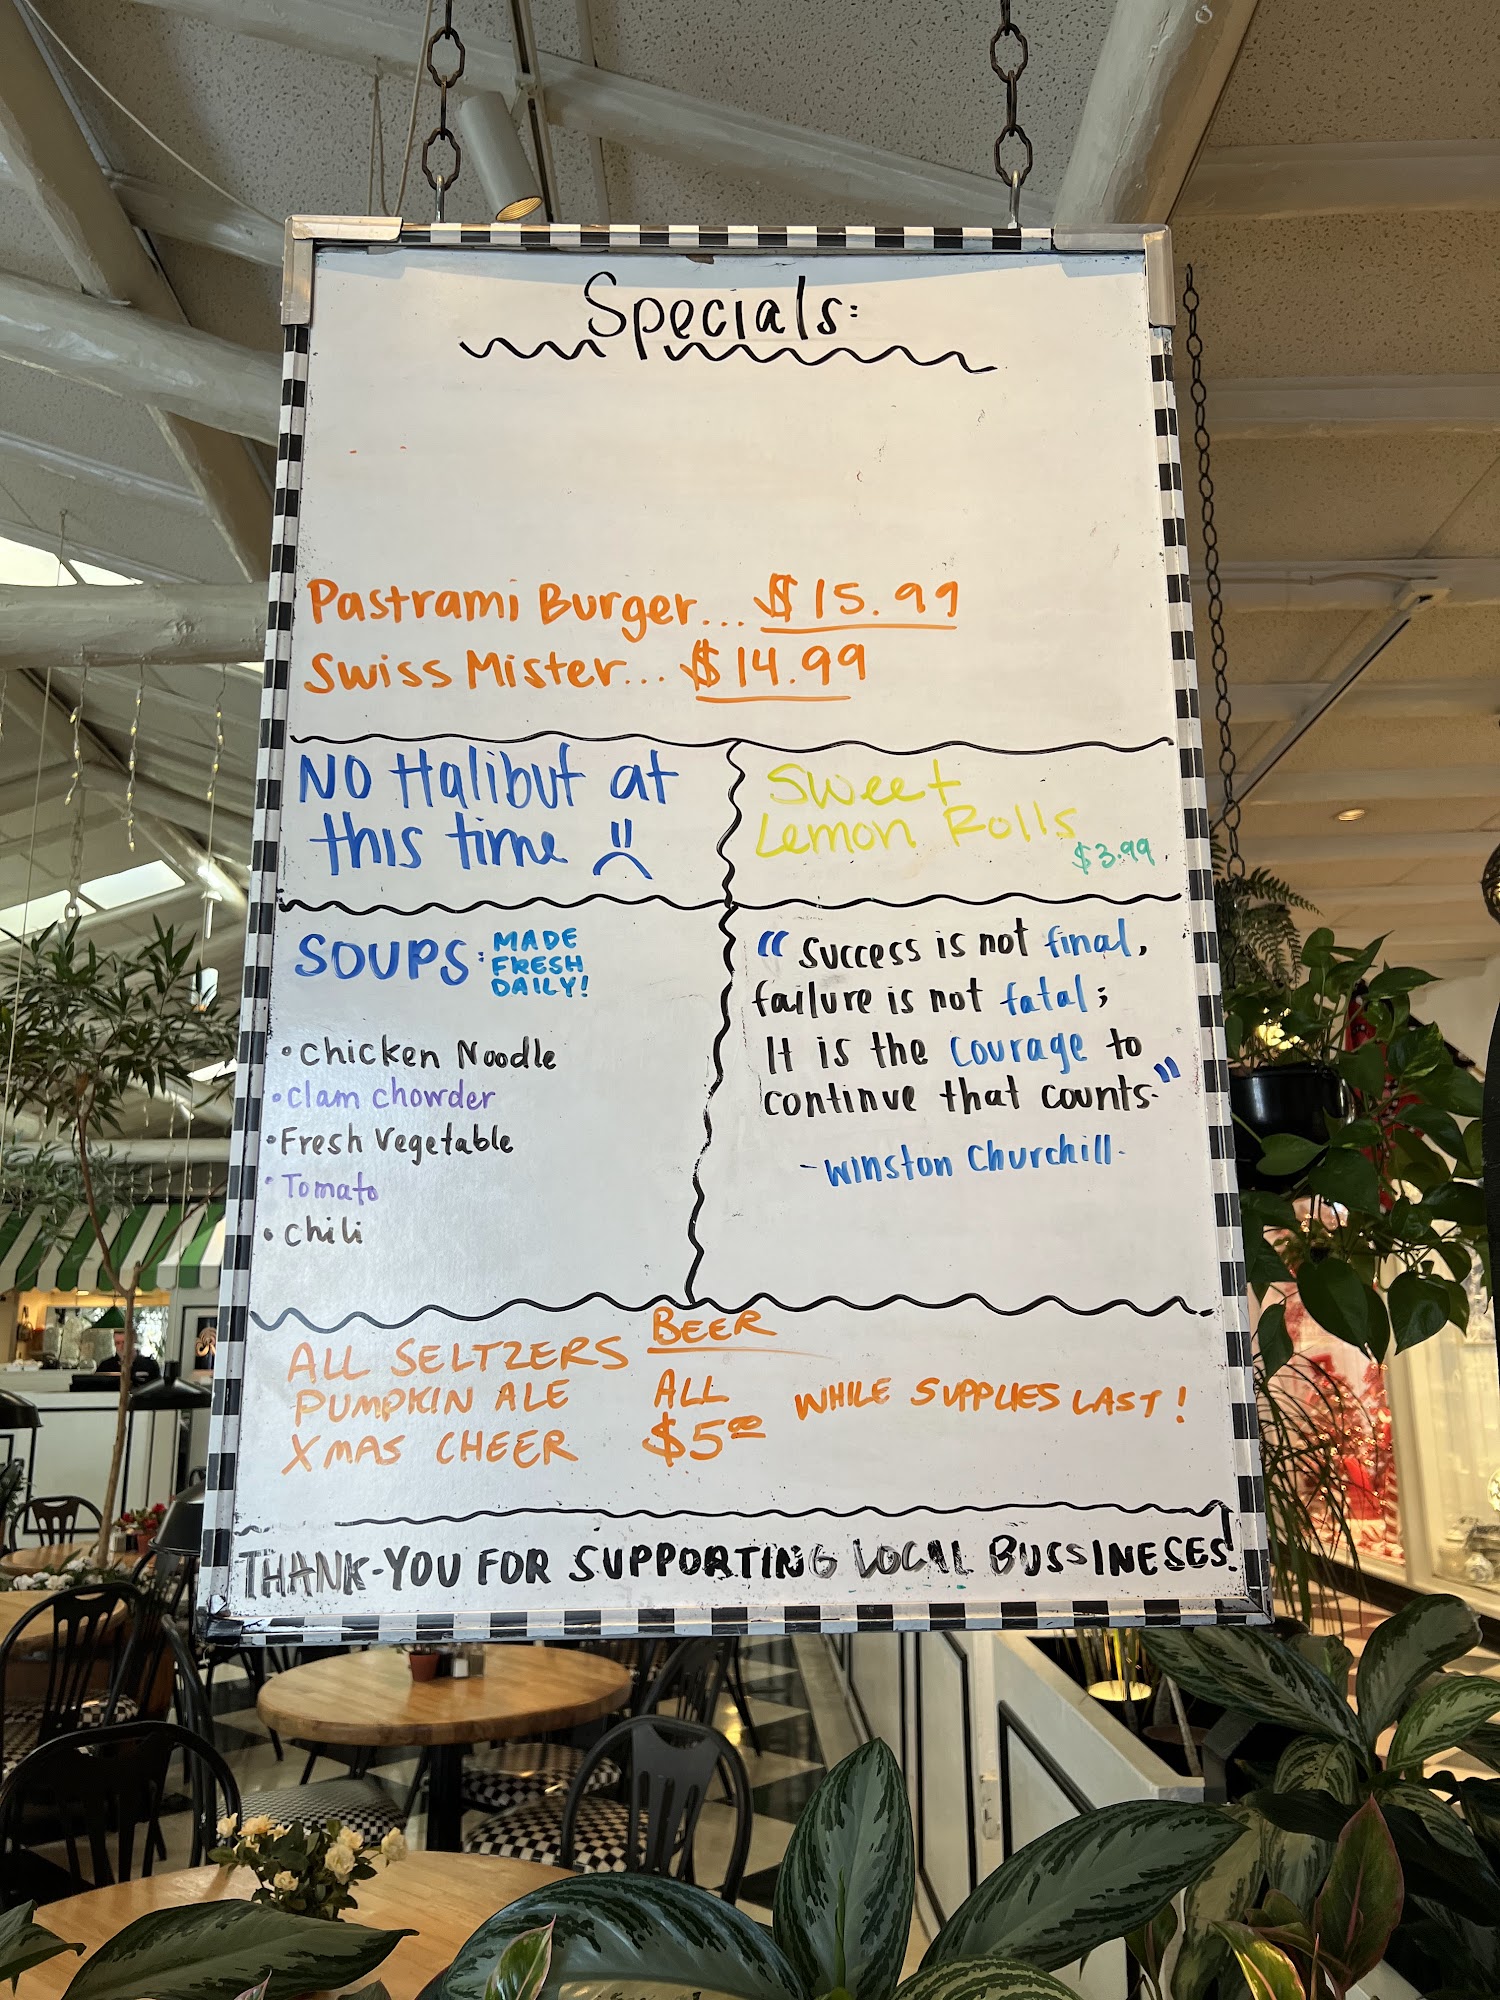 Specials:
Pastrami Burger... $15.99
Swiss Mister... $14.99
NO Halibut at
this time
Sweet
Lemon Rolls
$3.99
SOUPS: MADE
FRESH
DAILY!
• Chicken Noodle
• Clam Chowder
• Fresh Vegetable
• Tomato
• Chili
"Success is not final,
failure is not fatal;
It is the courage to
continue that counts."
- Winston Churchill.
BEER
ALL SELTZERS
PUMPKIN ALE
XMAS CHEER
ALL
$5.00
WHILE SUPPLIES LAST!
THANK-YOU FOR SUPPORTING LOCAL BUSSINESES!